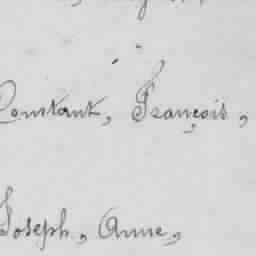 Constant, François,
Joseph, Anne,